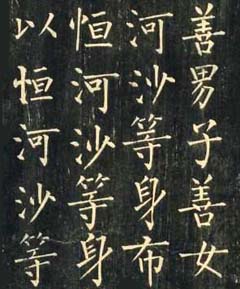 善男子善女
河沙等身布
恒河沙等身
以恒河沙等